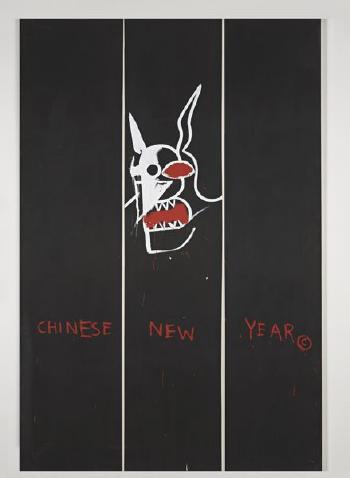 CHINESE NEW YEAR©